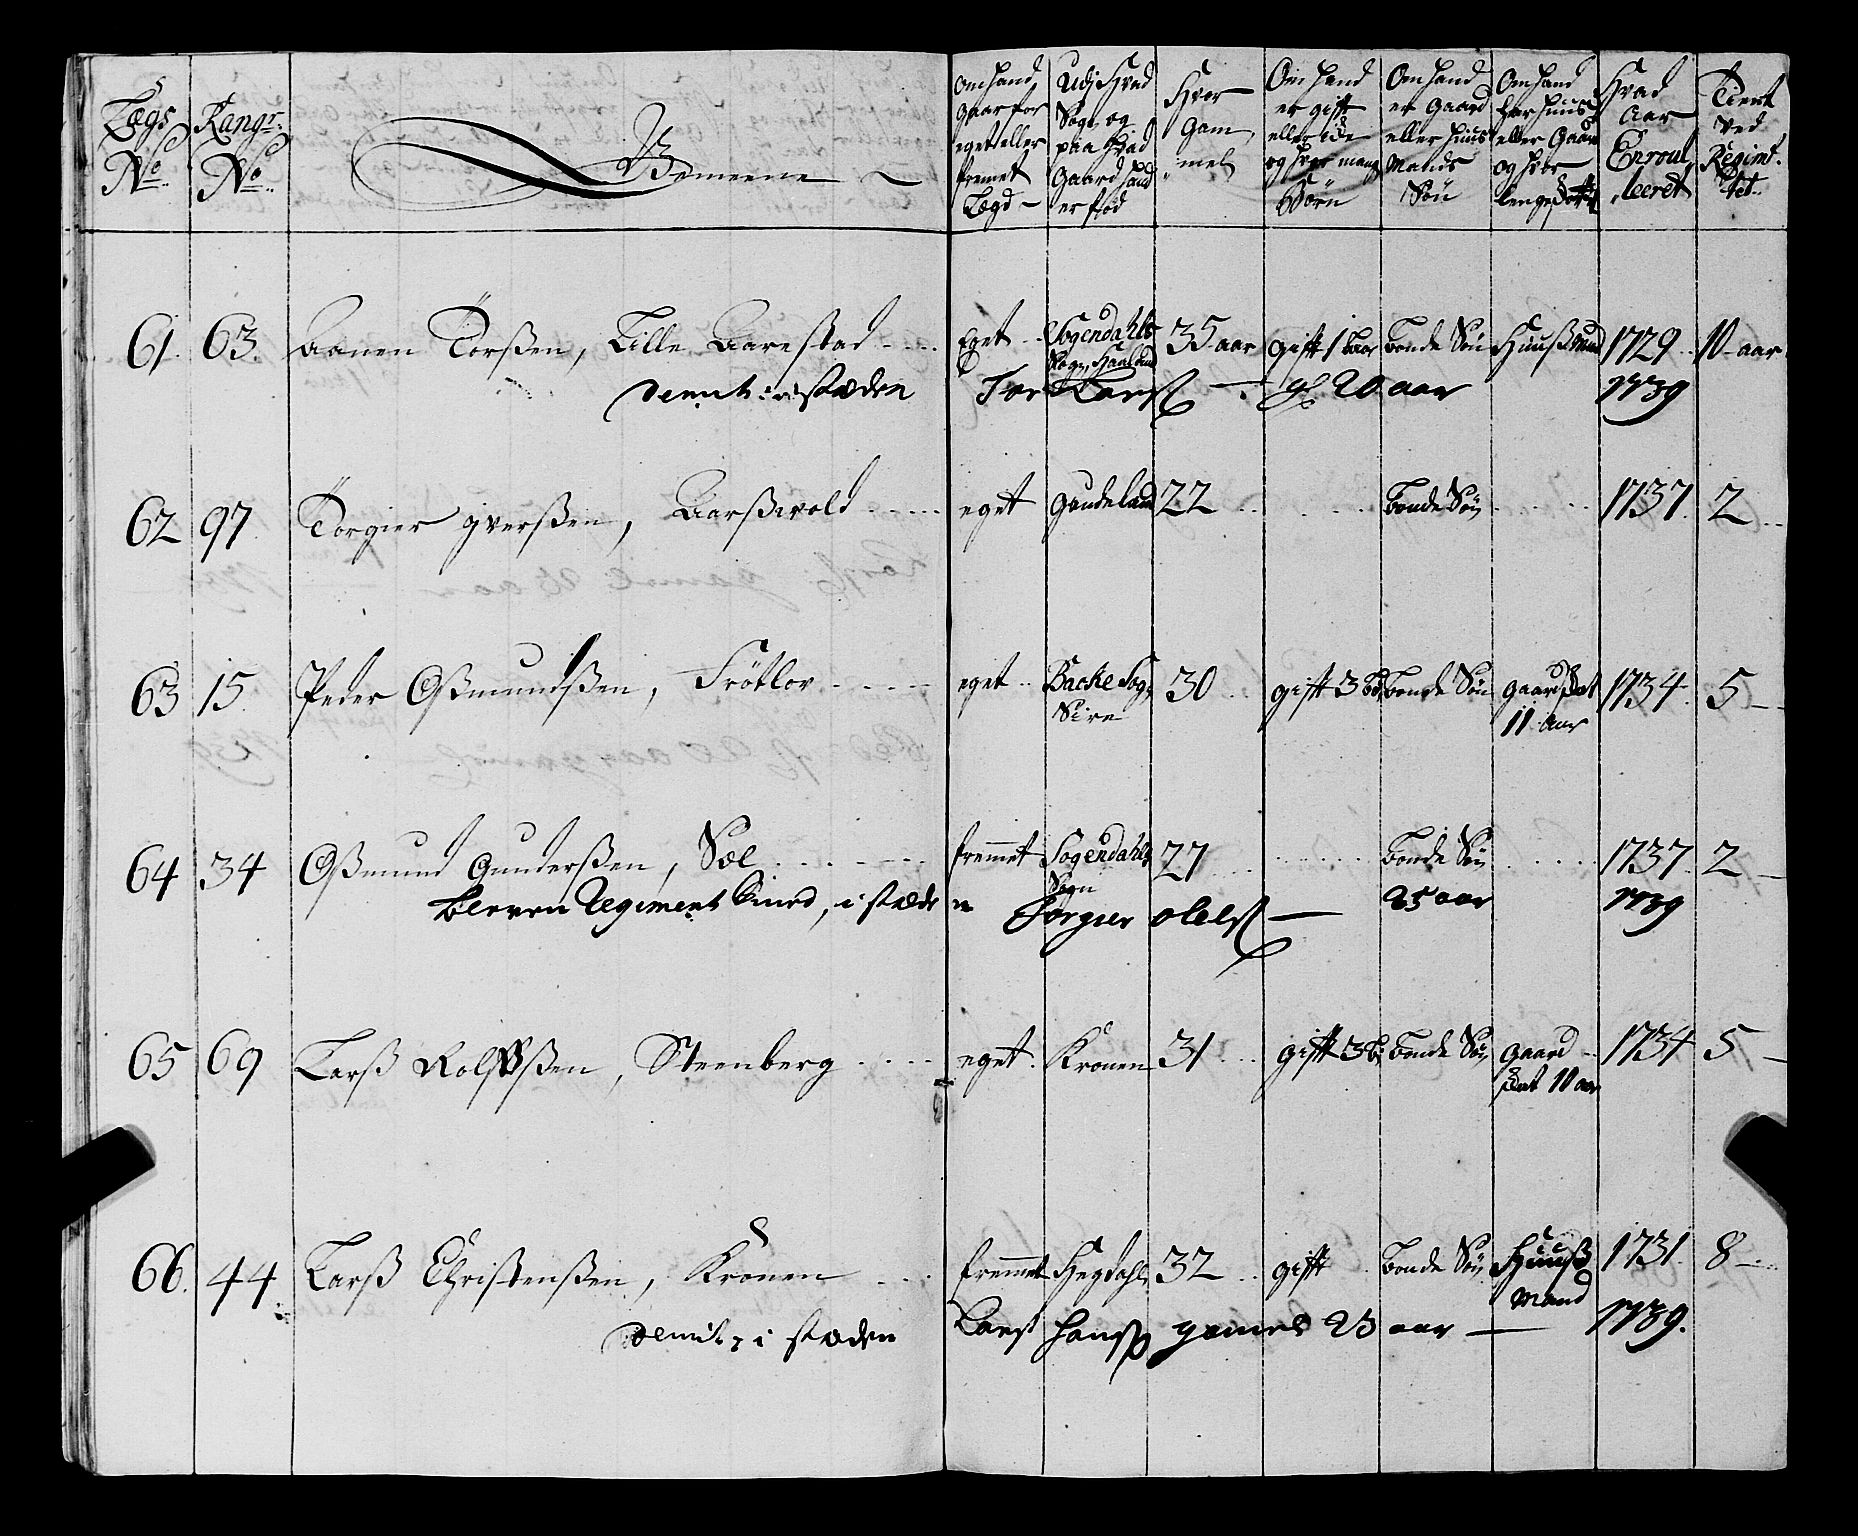 Lægs No. | Rangr: No. | Gemeene | Om hand gaar for eget eller fremet Lægd | Udj hvad Sogn og paa hvad Gaard hand er fød | Hvor gammel | Om hand er gift eller ide og hvor mang Børn | Om hand er Gaard eller Huus Mands Søn | Om hand har Huus eller Gaard og hvor lenge | Hvad Aar Enroulleeret | Tient ved Regimtet
61. | 63. | Aanen Torßen, Lille Aarestad | Eget | Sogendahls Sogn, Haaland | 35 aar | gift 1 Bar | Bonde Søn | Huuß Mand | 1729 | 10 aar
Demit: i støden Tor Larsß gl 20 aar 1739
62 | 97. | Torgier Iverßen, Aarßwold | eget | gandeland | 22 | Bonde Søn | 1737. | 2
63 | 15. | Peder Oßmundßen, Frötlov | eget | Backe Sog, Sire | 30 | gift 3 B | Bonde Søn | gaard 11 aar | 1734. | 5
64 | 34 | Oßmund Gunderßen, Sæl | fremmet | Sogendahls Sogn | 27 | Bonde Søn | 1737. | 2
Regiment Smed, i støden Torgier olelsß 25 aar 1739
65 | 69 | Larß Rolffßen, Steenberg | eget | Kronen | 31 | gift 3 B | Bonde Søn | gaard 10 aar | 1734 | 5
66. | 44 | Larß Christenßen, Kronen | fremmet | Hegdahl | 32 | gift | Bonde Søn | Huuß Mand | 1731. | 8
Demit, i støden Larß Hansß gamel 23 aar 1739.